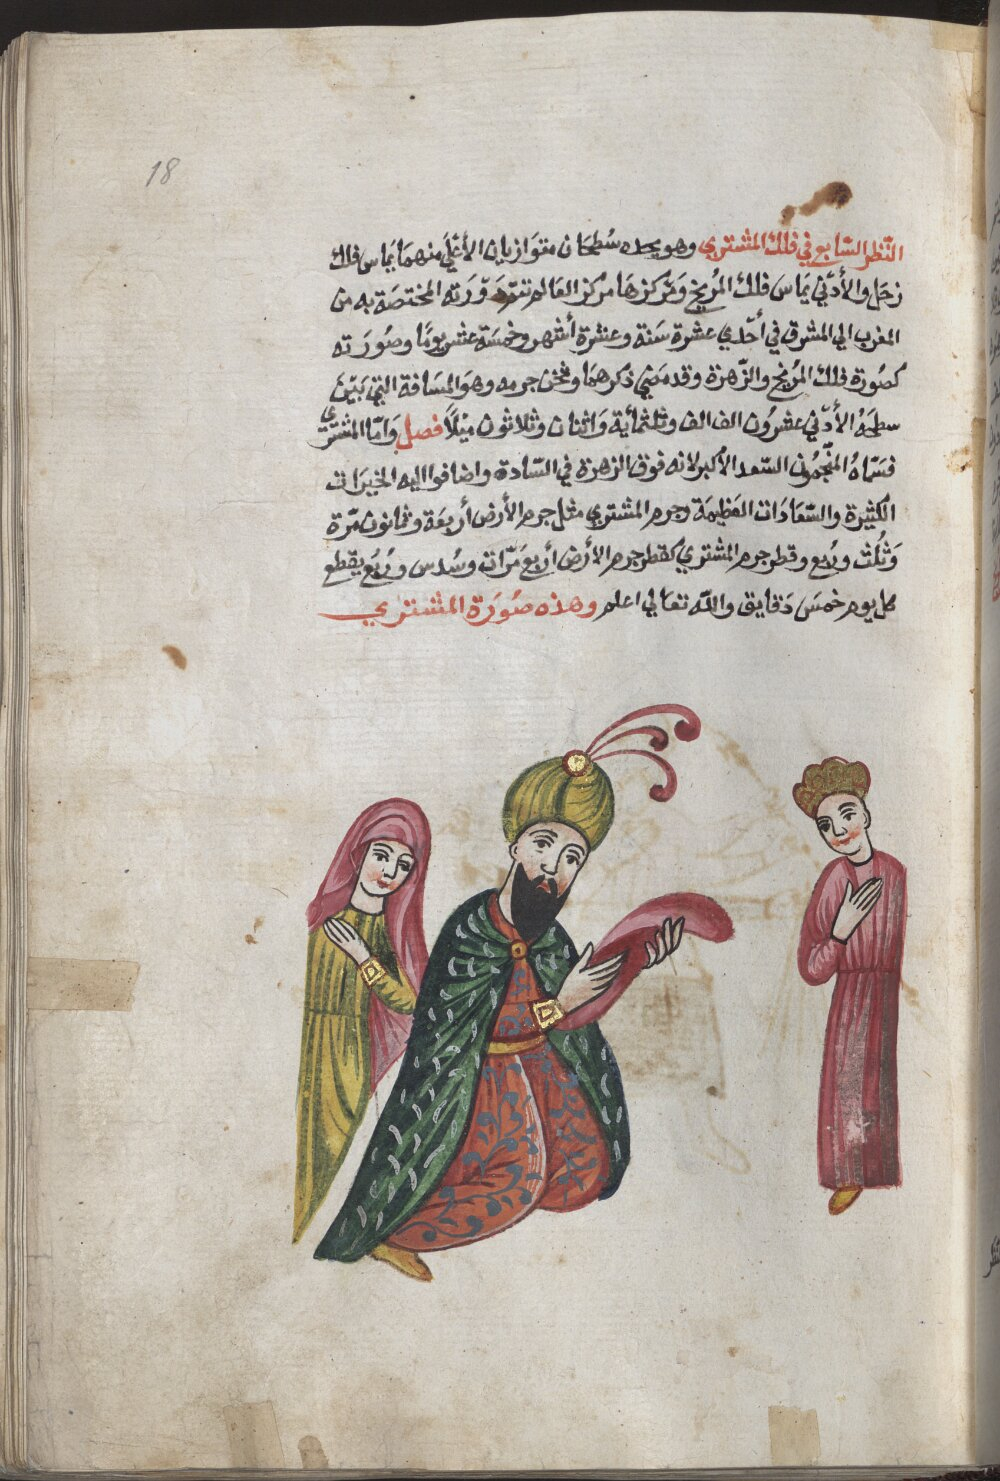 18
النّظر السّابع في فلك المشتري وهو يحده سُطحَان متوَازيان الأعْلَى منهمَا يمَاس فلك
زحَل والأدْنَى يمَاسَ فلك المرّيخ ومَركزهَا مركز العَالم تتم دَوْرَته المختصَة به من
المغرب الي المشرق في أحْدي عشرة سَنة وعشرة أشهر وخمسَة عشر يومًا وصُورَته
كصُورة فلك المرّيخ والزّهرة وقد مضي ذكرهمَا وثخن جرمه وهوَ المسَافة التي بَيْنَ
سطحَهُ الأدْني عشرُون الف الف وثلثمائية وَاثنان وثلاثون ميْلاً فصل وَامّا المشتري
فسَمّاهُ المنجّمُون السّعد الأكبر لانه فوق الزهرة في السّادة واضافوا اليه الخيرَات
الكثيرة والسّعَادَات العَظيمَة وجرم المشتري مثل جرم الأرض أربعَة وثمانون مَرّة
وَثُلُث ورُبع وقطر جرم المشتري كقطر جرم الأرض أربع مَرّات وسُدس ورُبَع يقطع
كل يوم خمسَ دَقايق واللّه تعَالي اعلم وهذه صُورَة المشتري